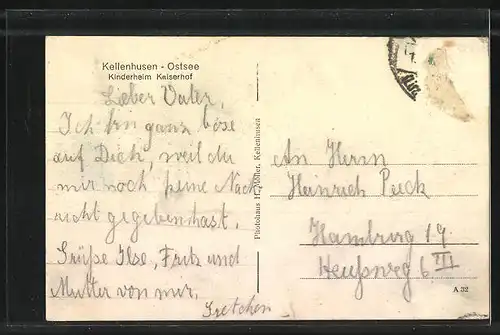 Kellenhusen - Ostsee
Kinderheim Kaiserhof
Lieber Vater,
Ich bin ganz böse
auf Dich, weil du
mir noch keine Nach
richt gegeben hast.
Grüße Ilse, Fritz und
Mutter von mir.
Gretchen
Photohaus H. Kellenhusen
An Herrn
Heinrich Pieck
Hamburg 19
Heußweg 6 III
A 32